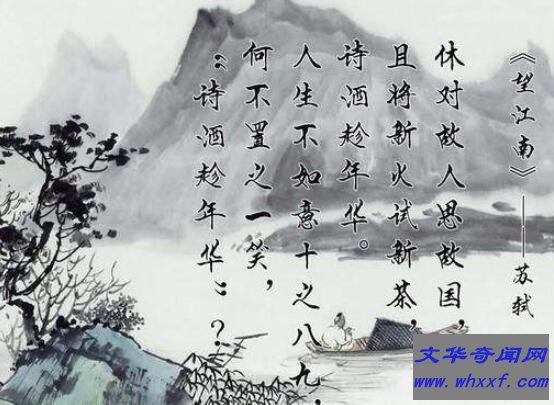 《望江南》——苏轼
休对故人思故国，
且将新火试新茶，
诗酒趁年华。
人生不如意十之八九，
何不置之一笑，
“诗酒趁年华”？
文华奇闻网
www.whxxf.com